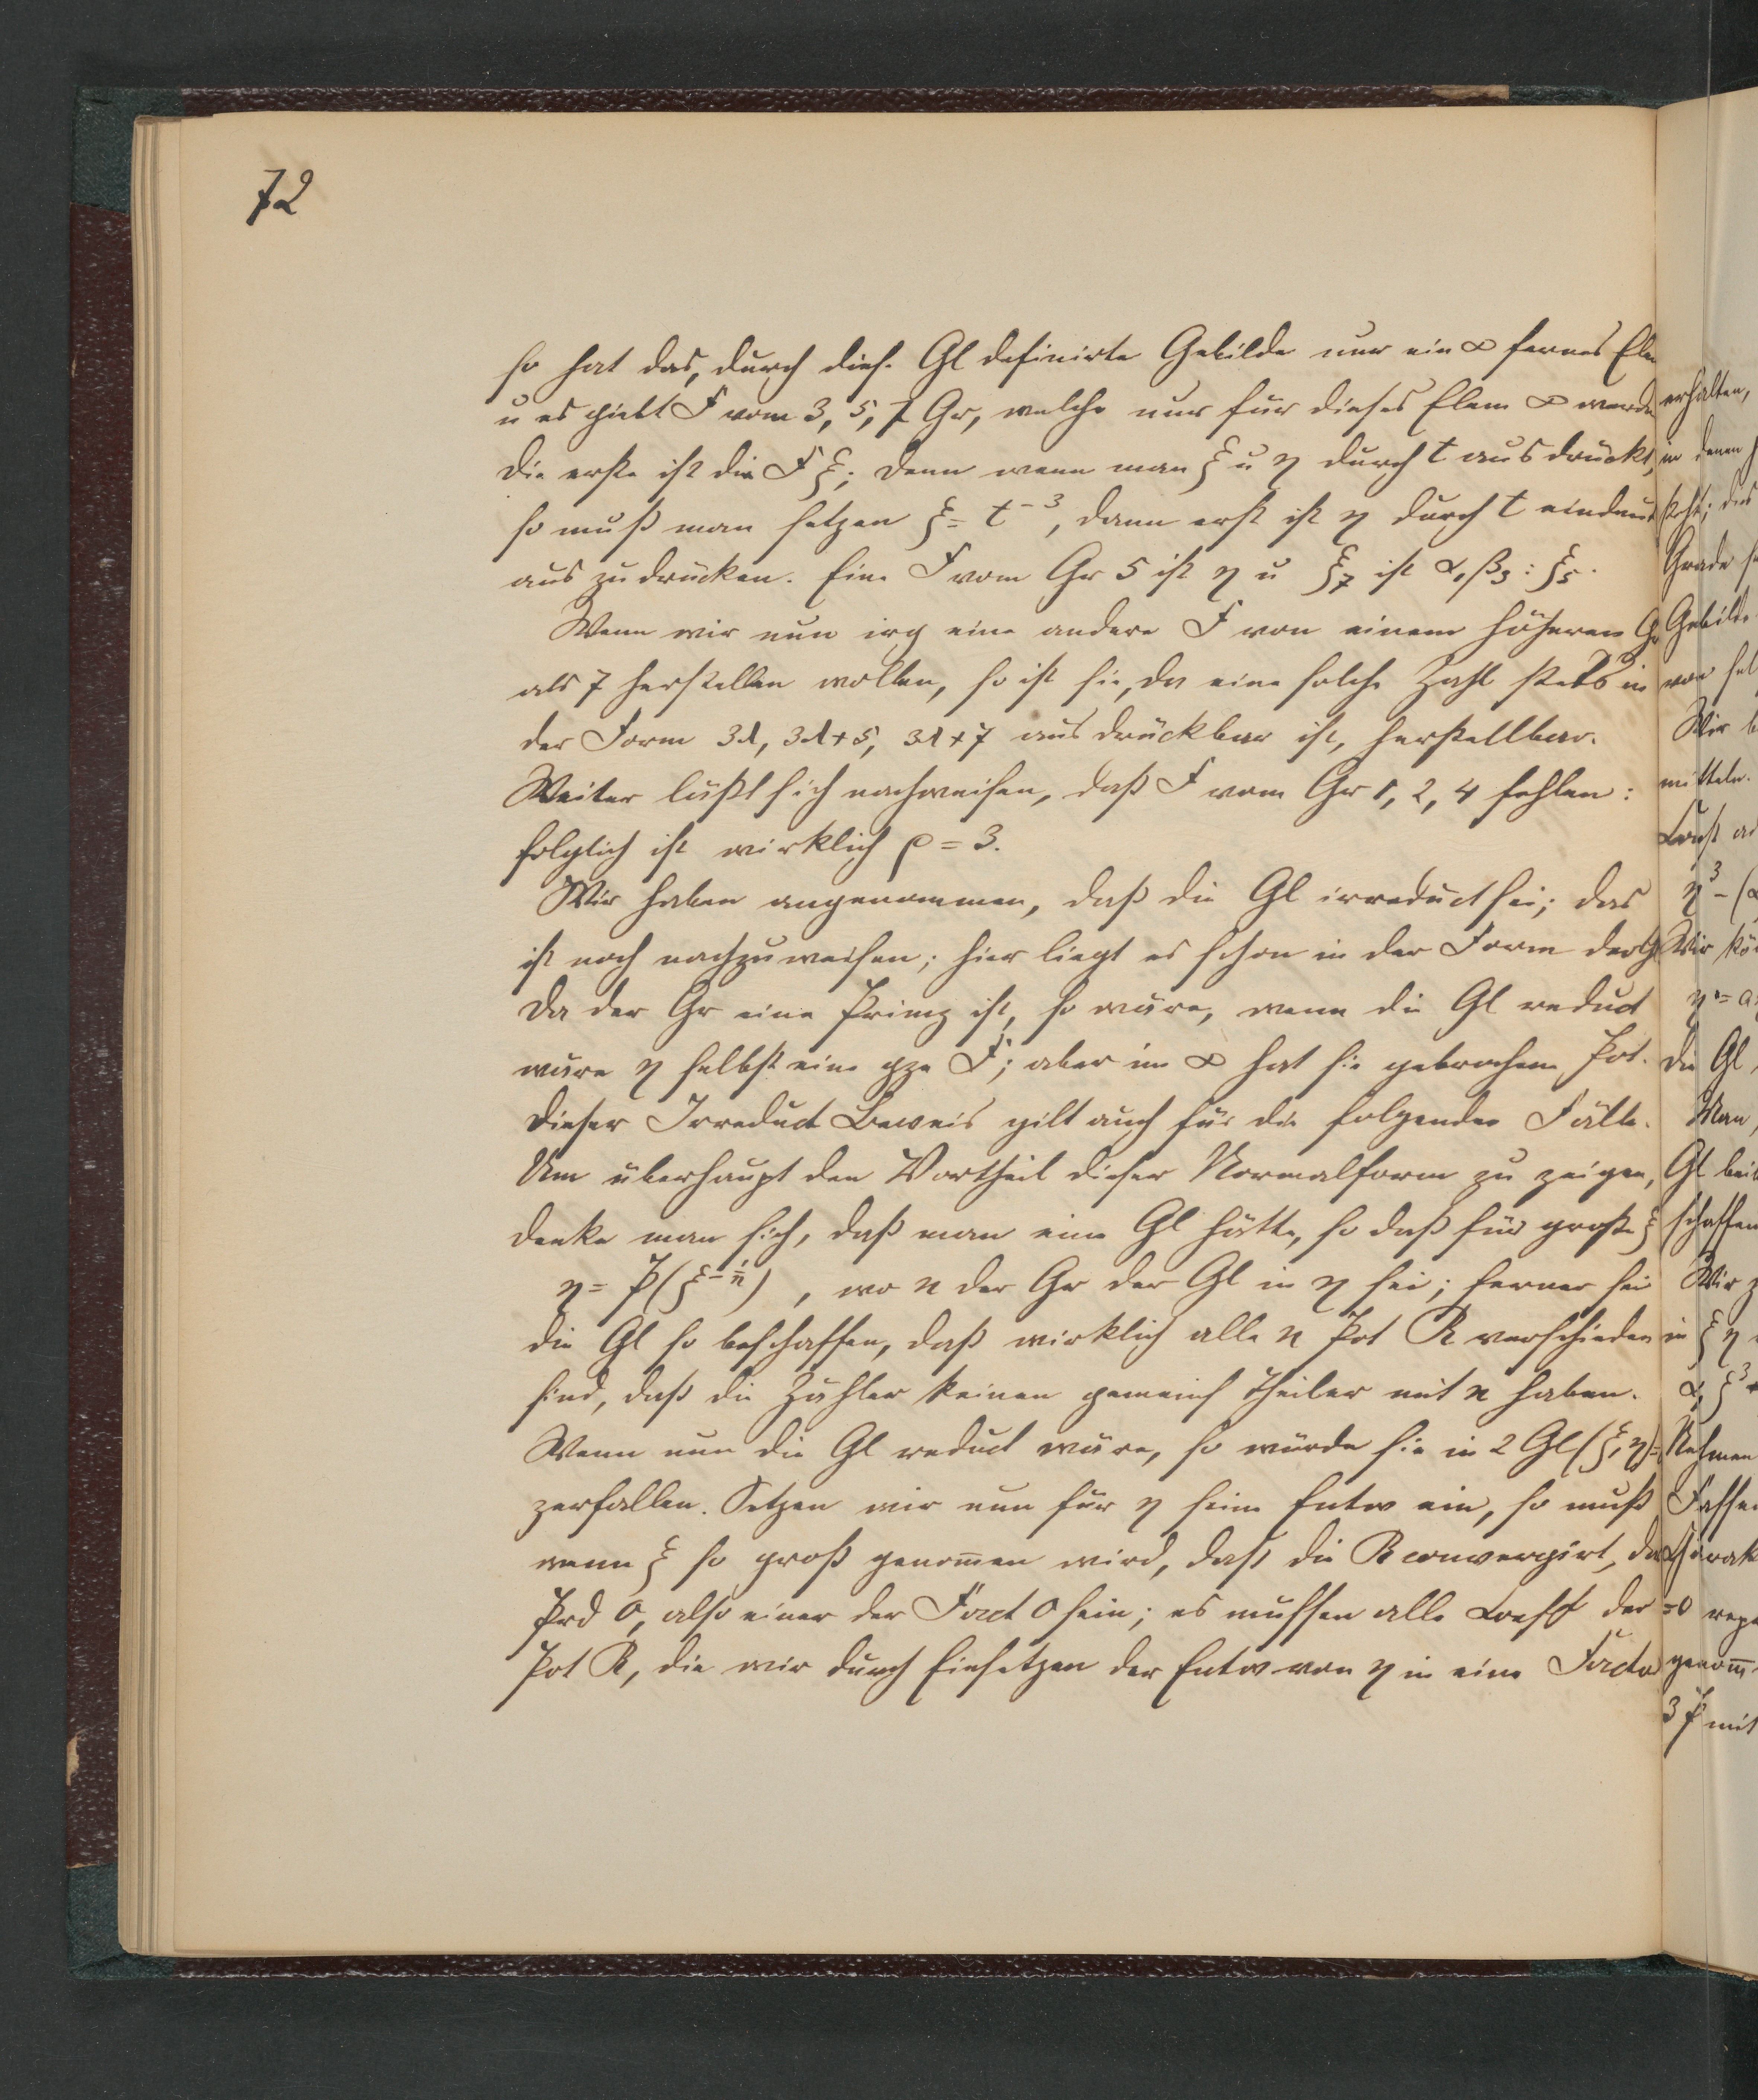 72
so hat das, durch dies. Gl definirte Gebilde nur ein ∞ fernes Elem
u es giebt F vom 3, 5, 7 Gr, welche nur für dieses Elem ∞ werden
die erste ist die F ξ; denn wenn man ξ u η durch t ausdrückt,
so muß man setzen ξ = t⁻³, dann erst ist η durch t eindeut
aus zu drücken. Eine F vom Gr 5 ist η u ξ₇ ist α₁β₃ : ξ₅.
Wenn wir nun irg eine andere F von einem höheren Gr
als 7 herstellen wollen, so ist sie, da eine solche Zahl stets in
der Form 3λ, 3λ+5, 3λ+7 ausdrückbar ist, herstellbar.
Weiter läßt sich nachweisen, daß F vom Gr 1, 2, 4 fehlen:
folglich ist wirklich ρ = 3.
Wir haben angenommen, daß die Gl irreduct sei; das
ist noch nachzuweisen; hier liegt es schon in der Form der Gl
Da der Gr eine Primz ist, so wäre, wenn die Gl reduct
wäre η selbst eine gze F; aber im ∞ hat sie gebrochene Pot.
Dieser Irreduct Beweis gilt auch für die folgenden Fälle.
Um überhaupt den Vortheil dieser Normalform zu zeigen,
denke man sich, daß man eine Gl hätte, so daß für große ξ
η = P(ξ^{-1/n}), wo n der Gr der Gl in η sei; ferner sei
die Gl so beschaffen, daß wirklich alle n Pot R verschieden
sind, daß die Zähler keinen gemeins Theiler mit n haben.
Wenn nun die Gl reduct wäre, so würde sie in 2 Gl (ξ, η) =
zerfallen. Setzen wir nun für η seine Entw ein, so muß
wenn ξ so groß genom̅en wird, daß die R convergirt, das
Prd 0, also einer der Fact 0 sein; es müssen alle Coeff der
Pot R, die wir durch Einsetzen der Entw von η in eine Factor
erhalten,
in denen
steht; dies
Grade
Gebilde
von
Wir
mitteln.
η³ − (α
Wir kön
die Gl
Man
Gl
schaffen
Wir
in ξ η
Nehmen
=0
genom̅.
3 P mit